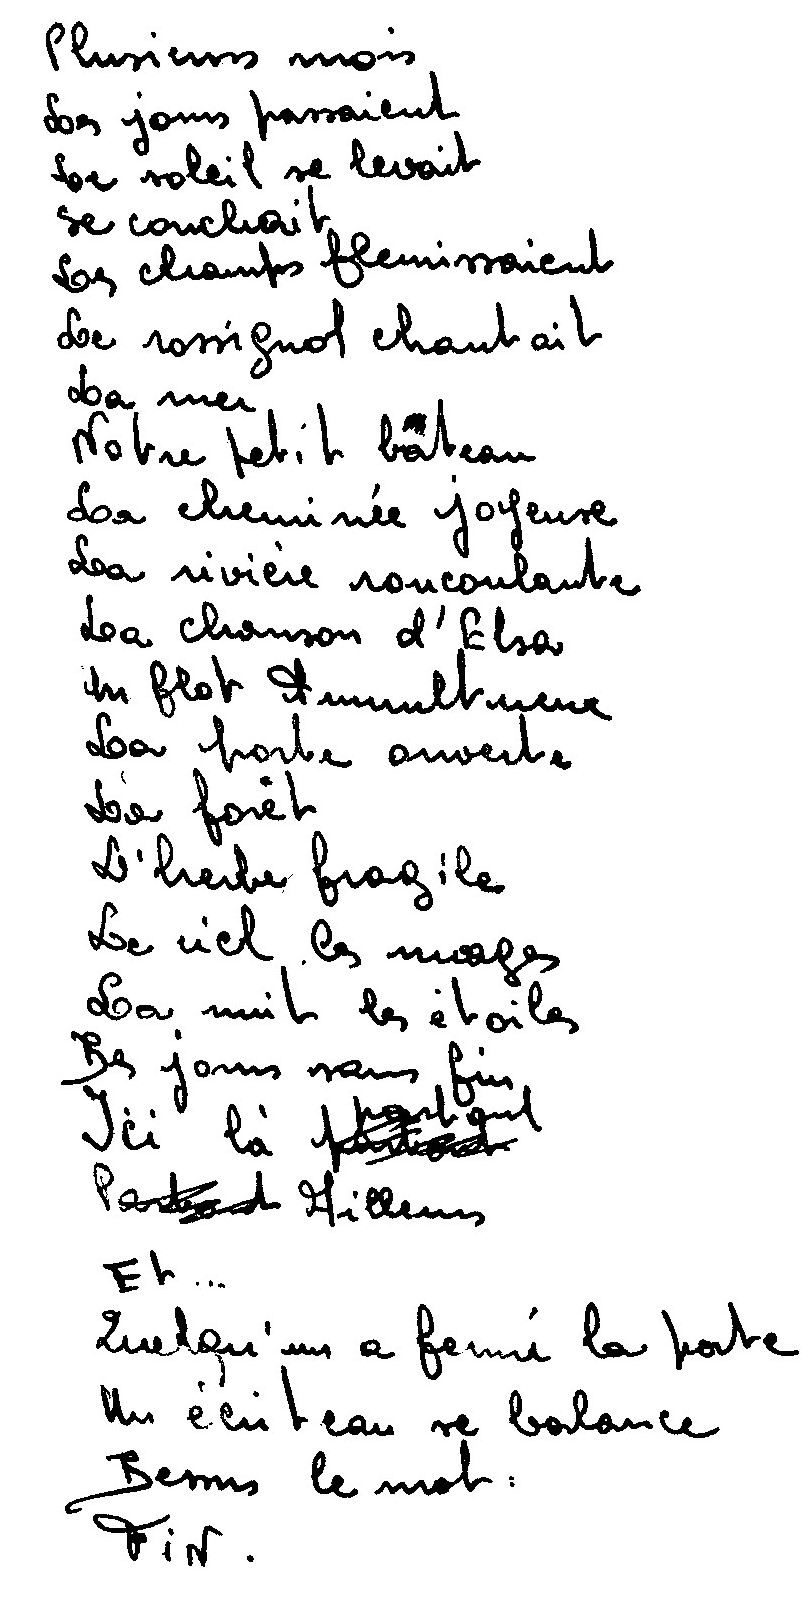 Plusieurs mois
Les jours passaient
Le soleil se levait
se couchait
Les champs fleurissaient
Le rossignol chantait
La mer
Notre petit bateau
La cheminée joyeuse
La rivière roucoulante
La chanson d'Elsa
Un flot tumultueux
La porte ouverte
La forêt
L'herbe fragile
Le ciel les nuages
La nuit les étoiles
Des jours sans fin
Ici là partout
Ailleurs
Et...
Quelqu'un a fermé la porte
Un écriteau se balance
Dessus le mot :
FiN.